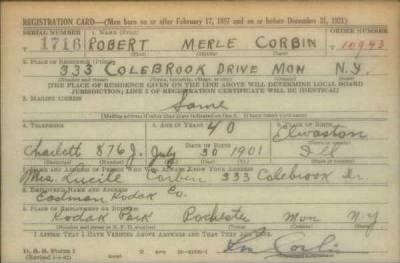 REGISTRATION CARD—(Men born on or after February 17, 1897 and on or before December 31, 1921)
SERIAL NUMBER 1. NAME (Print) ORDER NUMBER
1716 ROBERT MERLE CORBIN 10943
(First) (Middle) (Last)
2. PLACE OF RESIDENCE (Print)
333 COLEBROOK DRIVE MON N.Y.
(Number and street) (Town, township, village, or city) (County) (State)
[THE PLACE OF RESIDENCE GIVEN ON THE LINE ABOVE WILL DETERMINE LOCAL BOARD
JURISDICTION; LINE 2 OF REGISTRATION CERTIFICATE WILL BE IDENTICAL]
3. MAILING ADDRESS
Same
[Mailing address if other than place indicated on line 2. If same insert word same]
4. TELEPHONE 5. AGE IN YEARS 6. PLACE OF BIRTH
40 Elvaston
DATE OF BIRTH
Charlott 876J. July 30 1901 Ill
(Exchange) (Number) (Mo.) (Day) (Yr.) (State or country)
7. NAME AND ADDRESS OF PERSON WHO WILL ALWAYS KNOW YOUR ADDRESS
Mrs. Lucille Corbin 333 Colebrook Dr.
8. EMPLOYER'S NAME AND ADDRESS
Eastman Kodak Co.
9. PLACE OF EMPLOYMENT OR BUSINESS
Kodak Park Rochester Mon N Y
(Number and street or R. F. D. number) (Town) (County) (State)
I AFFIRM THAT I HAVE VERIFIED ABOVE ANSWERS AND THAT THEY ARE TRUE.
D. S. S. Form 1
Corbin